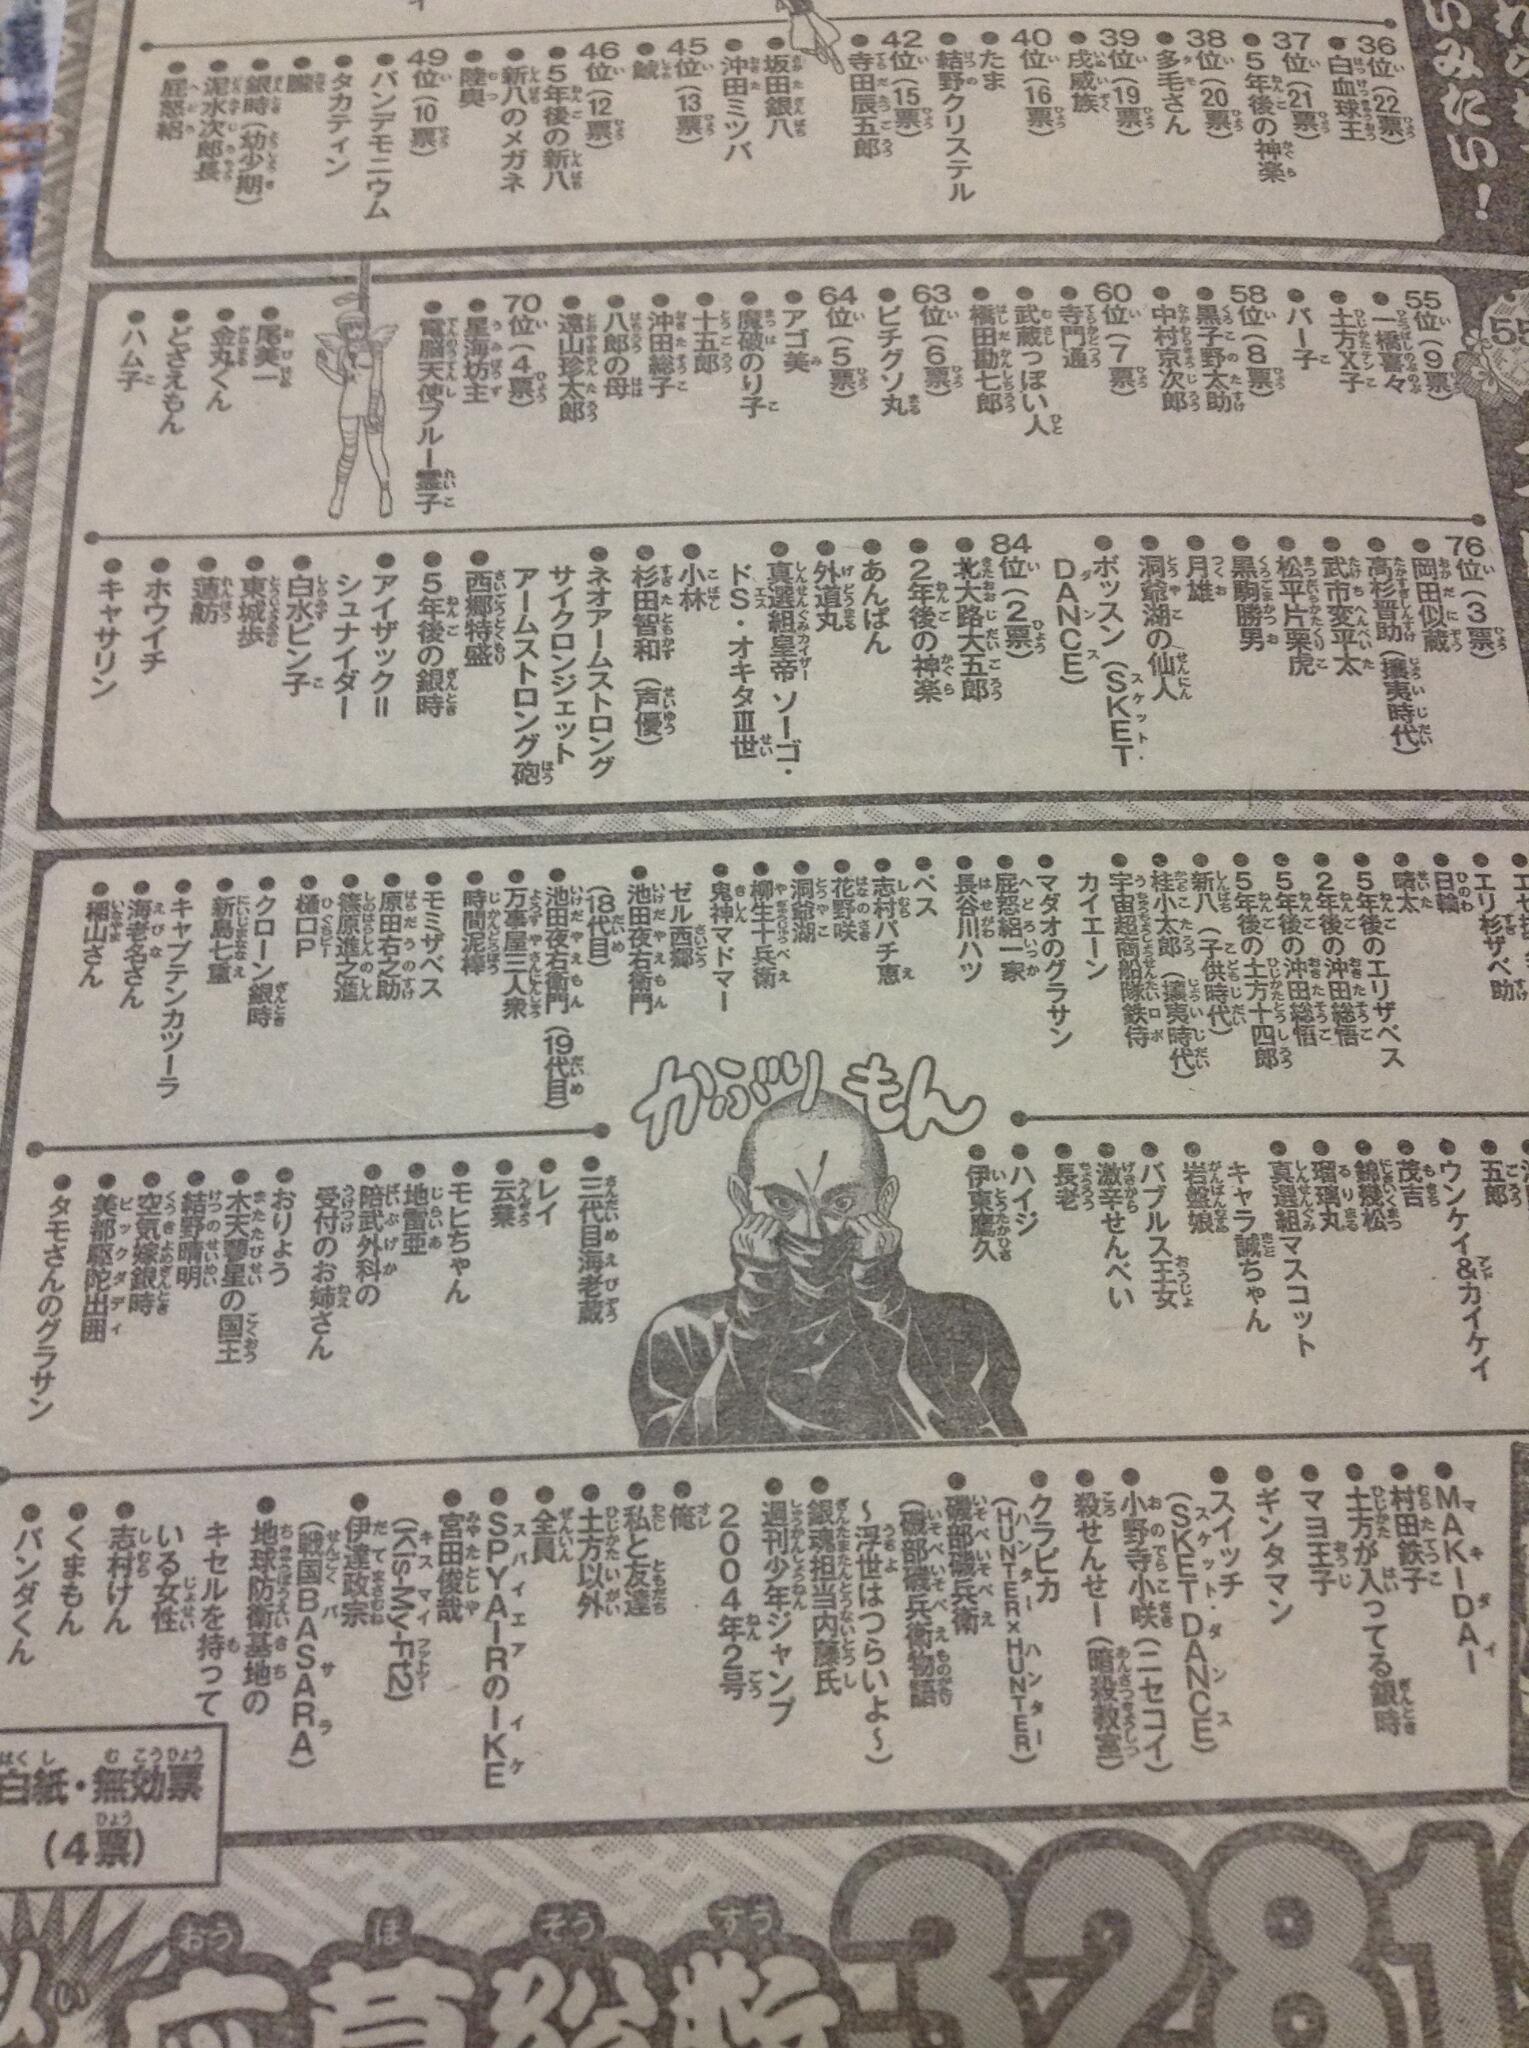 いみたい!
36位(22票)
●白血球王
37位(21票)
●5年後の神楽
38位(20票)
●多毛さん
39位(19票)
●戌威族
40位(16票)
●たま
●結野クリステル
42位(15票)
●寺田辰五郎
●坂田銀八
●沖田ミツバ
45位(13票)
●鯱
46位(12票)
●5年後の新八
●新八のメガネ
●陸奥
49位(10票)
●パンデモニウム
●タカティン
●朧
●銀時(幼少期)
●泥水次郎長
●屁怒絽
55位(9票)
●一橋喜々
●土方X子
●パー子
58位(8票)
●黒子野太助
●中村京次郎
60位(7票)
●寺門通
●武蔵っぽい人
●橋田勘七郎
63位(6票)
●ビチグソ丸
64位(5票)
●アゴ美
●魔破のり子
●十五郎
●沖田総子
●八郎の母
●遠山珍太郎
70位(4票)
●星海坊主
●電脳天使ブルー霊子
●尾美一
●金丸くん
●どざえもん
●ハム子
76位(3票)
●岡田似蔵
●高杉晋助(攘夷時代)
●武市変平太
●松平片栗虎
●黒駒勝男
●月雄
●洞爺湖の仙人
●ボッスン(SKET
DANCE)
84位(2票)
●北大路大五郎
●2年後の神楽
●あんぱん
●外道丸
●真選組皇帝 ソーゴ・
ドS・オキタⅢ世
●小林
●杉田智和(声優)
●ネオアームストロング
サイクロンジェット
アームストロング砲
●西郷特盛
●5年後の銀時
●アイザック=
シュナイダー
●白水ピン子
●東城歩
●蓮舫
●ホウイチ
●キャサリン
●エリ杉ザベ助
●日輪
●晴太
●5年後のエリザベス
●2年後の沖田総悟
●5年後の沖田総悟
●5年後の土方十四郎
●新八(子供時代)
●桂小太郎(攘夷時代)
●宇宙超商船隊鉄侍
カイエーン
●マダオのグラサン
●屁怒絽一家
●長谷川ハツ
●ベス
●志村パチ恵
●花野咲
●洞爺湖
●柳生十兵衛
●鬼神マドマー
ゼル西郷
●池田夜右衛門
(18代目)
●池田夜右衛門(19代目)
●万事屋三人衆
●時間泥棒
●モミザベス
●原田右之助
●篠原進之進
●樋口P
●クローン銀時
●新島七重
●キャプテンカツーラ
●海老名さん
●稲山さん
かぶりもん
●五郎
●ウンケイ&カイケイ
●茂吉
●錦幾松
●瑠璃丸
●真選組マスコット
キャラ誠ちゃん
●岩盤娘
●バブルス王女
●激辛せんべい
●長老
●ハイジ
●伊東鷹久
●三代目海老蔵
●レイ
●云業
●モヒちゃん
●地雷亜
●陪武外科の
受付のお姉さん
●おりょう
●木天蓼星の国王
●結野晴明
●空気嫁銀時
●美都駆陀出囲
●タモさんのグラサン
●MAKIDAI
●村田鉄子
●土方が入ってる銀時
●マヨ王子
●ギンタマン
●スイッチ
(SKET DANCE)
●小野寺小咲(ニセコイ)
●殺せんせー(暗殺教室)
●クラピカ
(HUNTER×HUNTER)
●磯部磯兵衛
(磯部磯兵衛物語
〜浮世はつらいよ〜)
●銀魂担当内藤氏
●週刊少年ジャンプ
2004年2号
●俺
●私と友達
●土方以外
●全員
●SPYAIRのIKE
●宮田俊哉
(Kis-My-Ft2)
●伊達政宗
(戦国BASARA)
●地球防衛基地の
キセルを持って
いる女性
●志村けん
●くまもん
●パンダくん
白紙・無効票
(4票)
応募総数
3281